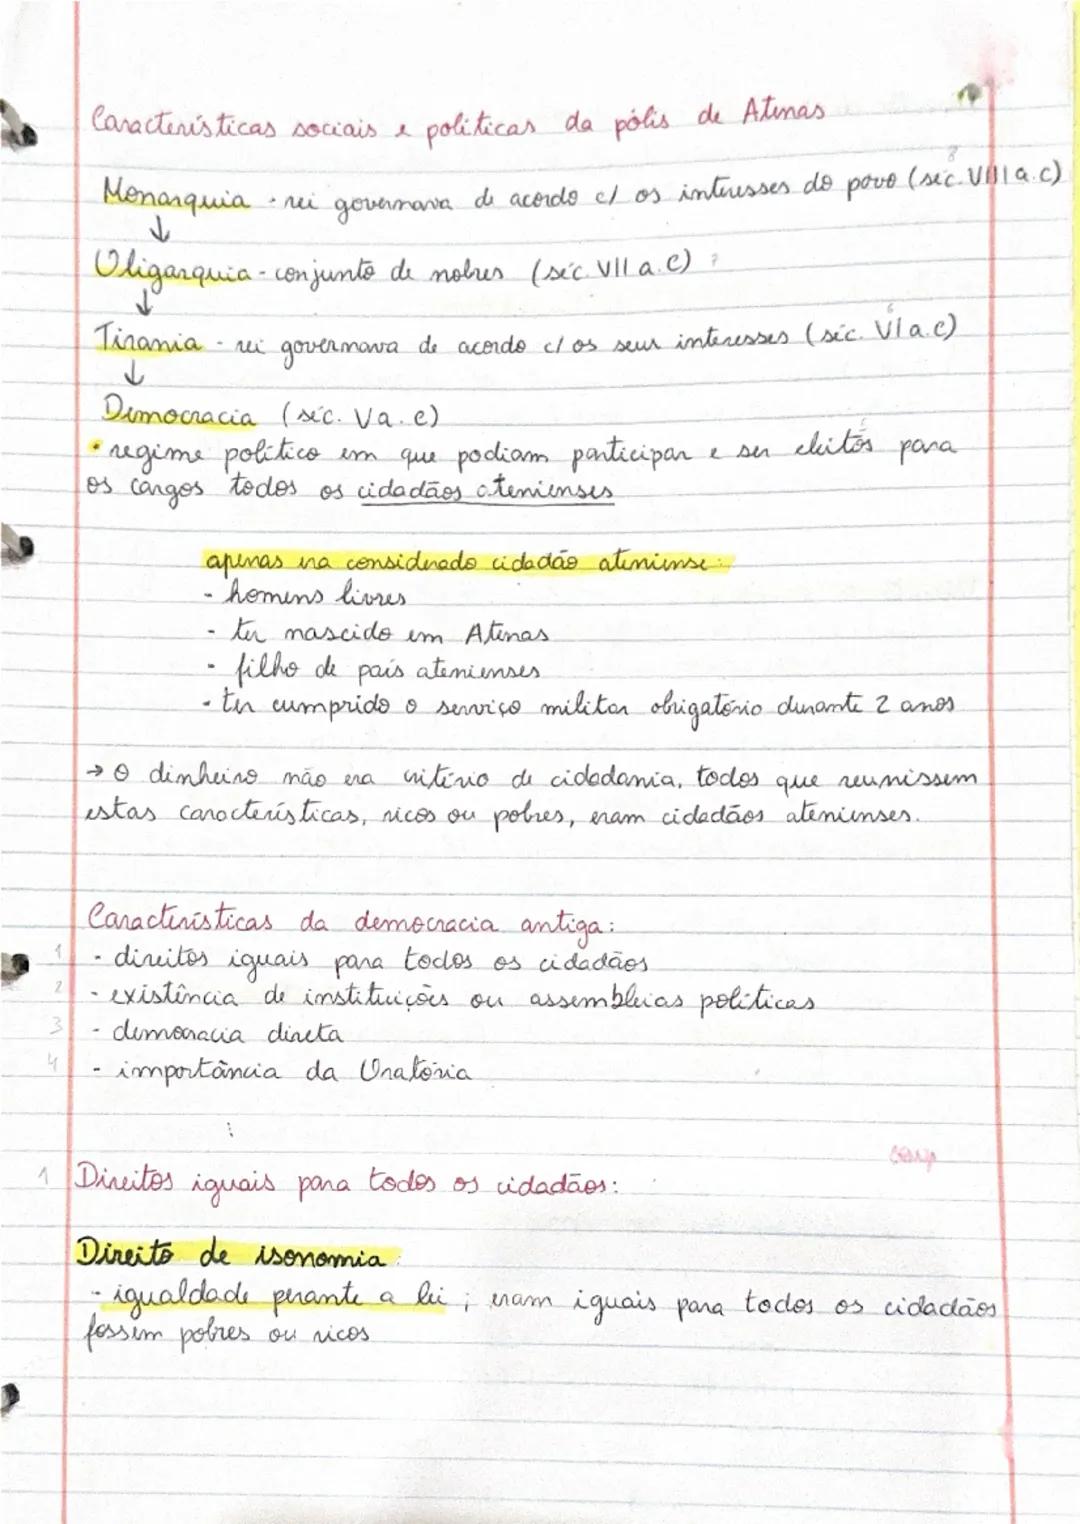 Características sociais e politicas da pólis de Atenas
8
Monarquia - rei governava de acordo c/ os interesses do povo (séc. VIII a.c)
↓
Oligarquia - conjunto de nobres (séc. VII a.C) 7
↓
6
Tirania - rei governava de acordo c/ os seus interesses (séc. VI a.c)
↓
Democracia (séc. V a.c)
• regime politico em que podiam participar e ser eleitos para
os cargos todos os cidadãos atenienses
apenas era considerado cidadão ateniense:
- homens livres
- ter nascido em Atenas
- filho de pais atenienses
- ter cumprido o serviço militar obrigatório durante 2 anos
→ O dinheiro não era critério de cidadania, todos que reunissem
estas características, ricos ou pobres, eram cidadãos atenienses.
Características da democracia antiga:
1 - direitos iguais para todos os cidadãos
2 - existência de instituições ou assembleias politicas
3 - democracia direta
4 - importância da Oratória
1 Direitos iguais para todos os cidadãos:
Direito de isonomia:
- igualdade perante a lei ; eram iguais para todos os cidadãos
fossem pobres ou ricos